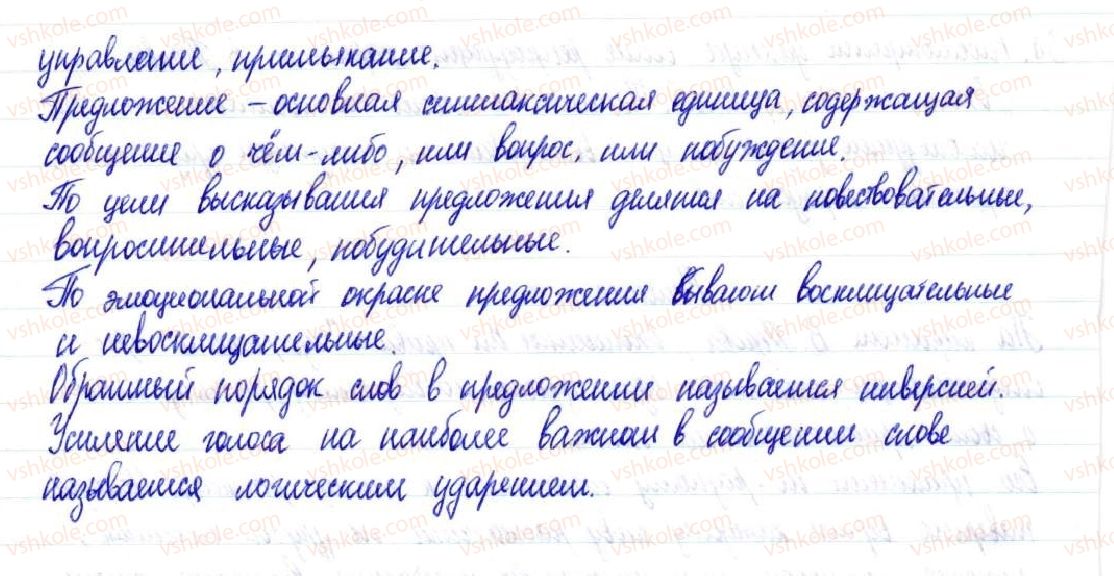 управление, примыкание.
Предложение – основная синтаксическая единица, содержащая
сообщение о чём-либо, или вопрос, или побуждение.
По цели высказывания предложения делятся на повествовательные,
вопросительные, побудительные.
По эмоциональной окраске предложения бывают восклицательные
и невосклицательные.
Обратный порядок слов в предложении называется инверсией.
Усиление голоса на наиболее важном в сообщении слове
называется логическим ударением.